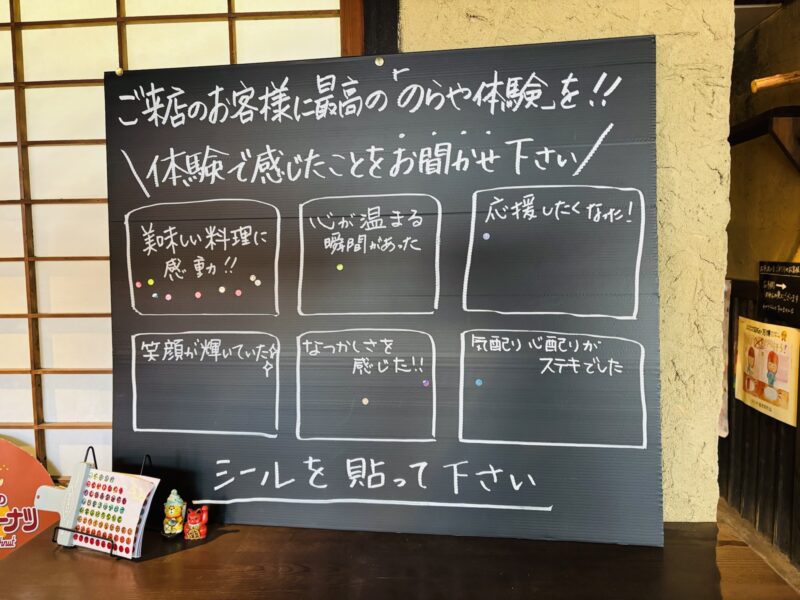 ご来店のお客様に最高の「のらや体験」を!!
\体験で感じたことをお聞かせ下さい/
美味しい料理に
感動!!
心が温まる
瞬間があった
応援したくなった!
笑顔が輝いていた
なつかしさを
感じた!!
気配り心配りが
ステキでした
シールを貼って下さい